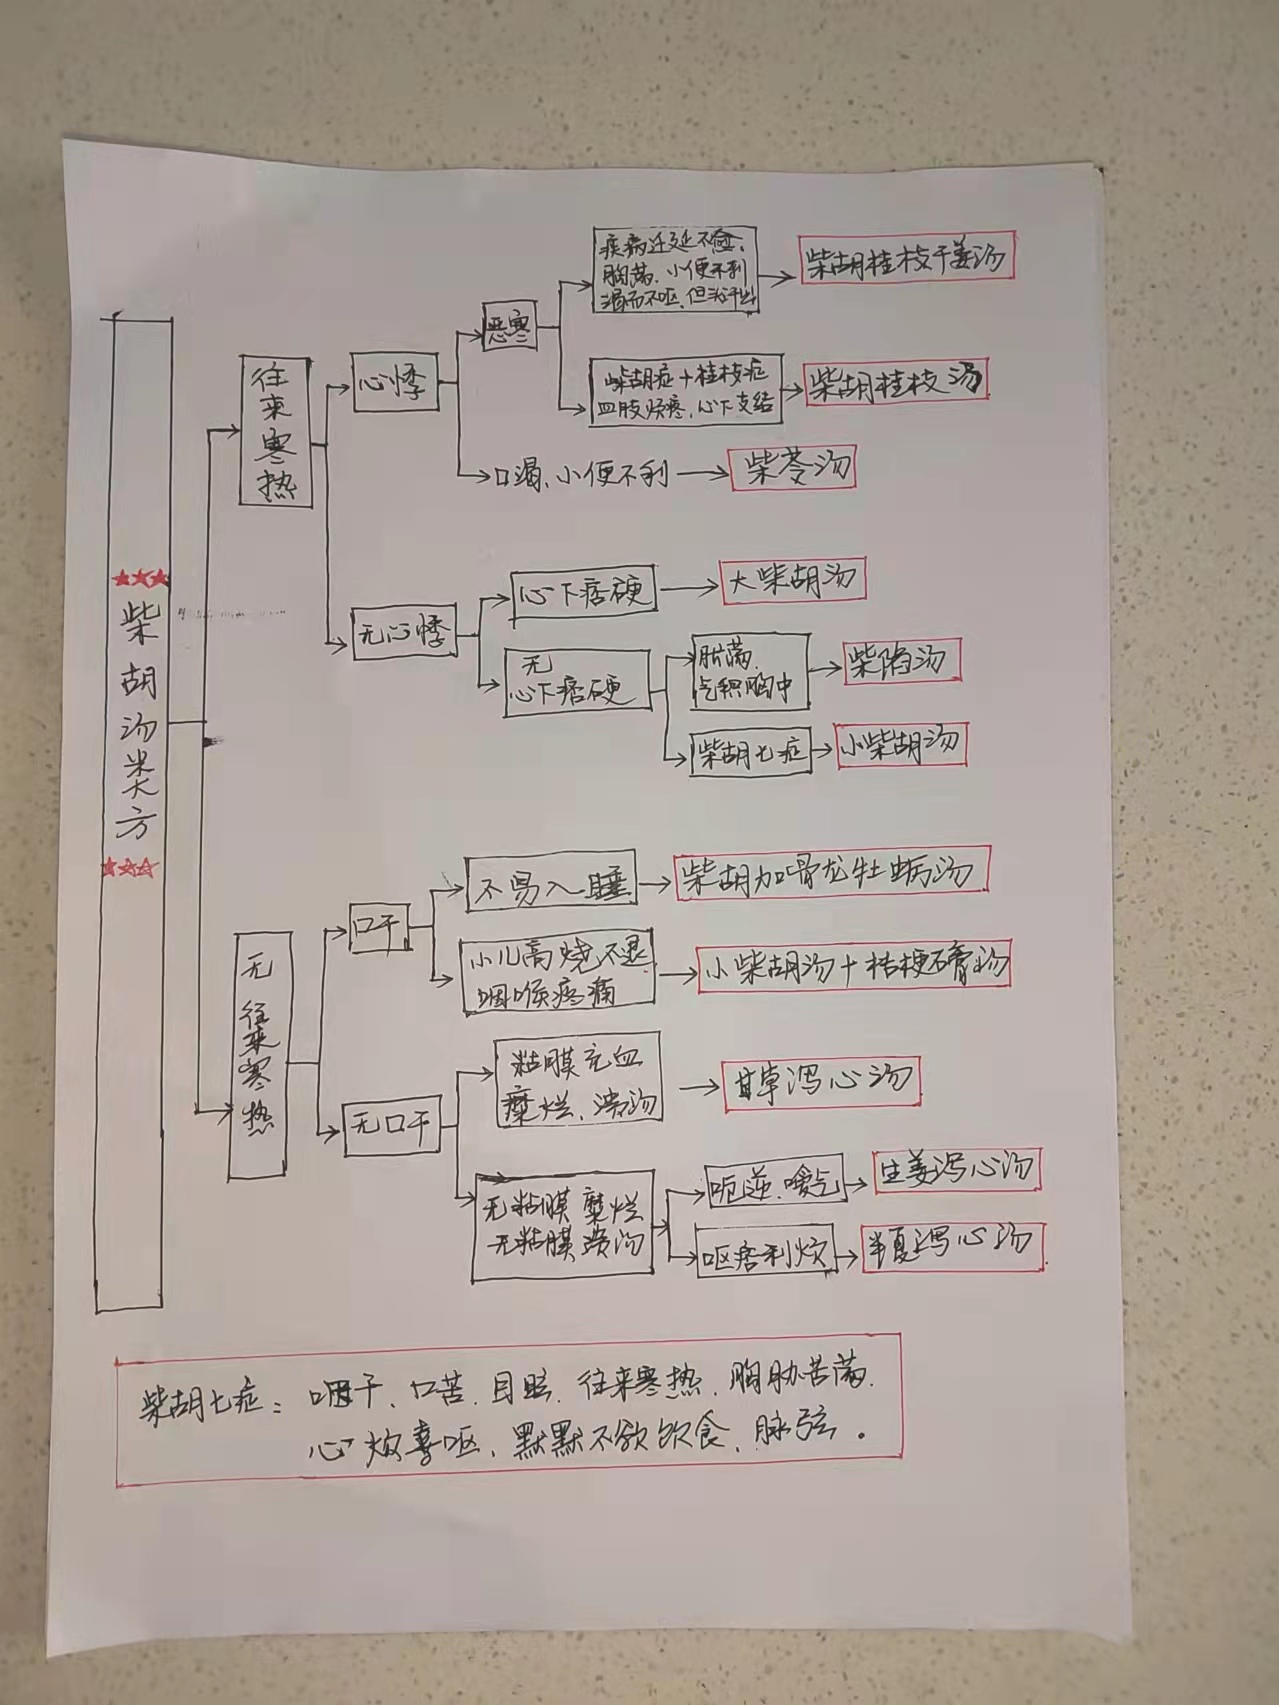 ★★★
柴胡汤类方
★★★
往来寒热
心悸
恶寒
疾病迁延不愈、
胸满、小便不利
渴而不呕、但头汗出
柴胡桂枝干姜汤
柴胡症+桂枝症
血肢烦疼、心下支结
柴胡桂枝汤
口渴、小便不利
柴苓汤
无心悸
心下痞硬
大柴胡汤
无
心下痞硬
胀满、
气积胸中
柴陷汤
柴胡七症
小柴胡汤
无往来寒热
口干
不易入睡
柴胡加骨龙牡蛎汤
小儿高烧不退
咽喉疼痛
小柴胡汤+桔梗石膏汤
无口干
粘膜充血
糜烂、溃疡
甘草泻心汤
无粘膜糜烂
无粘膜溃疡
呃逆、嗳气
生姜泻心汤
呕痞利烦
半夏泻心汤
柴胡七症：咽干、口苦、目眩、往来寒热、胸胁苦满、
心烦喜呕、默默不欲饮食、脉弦。